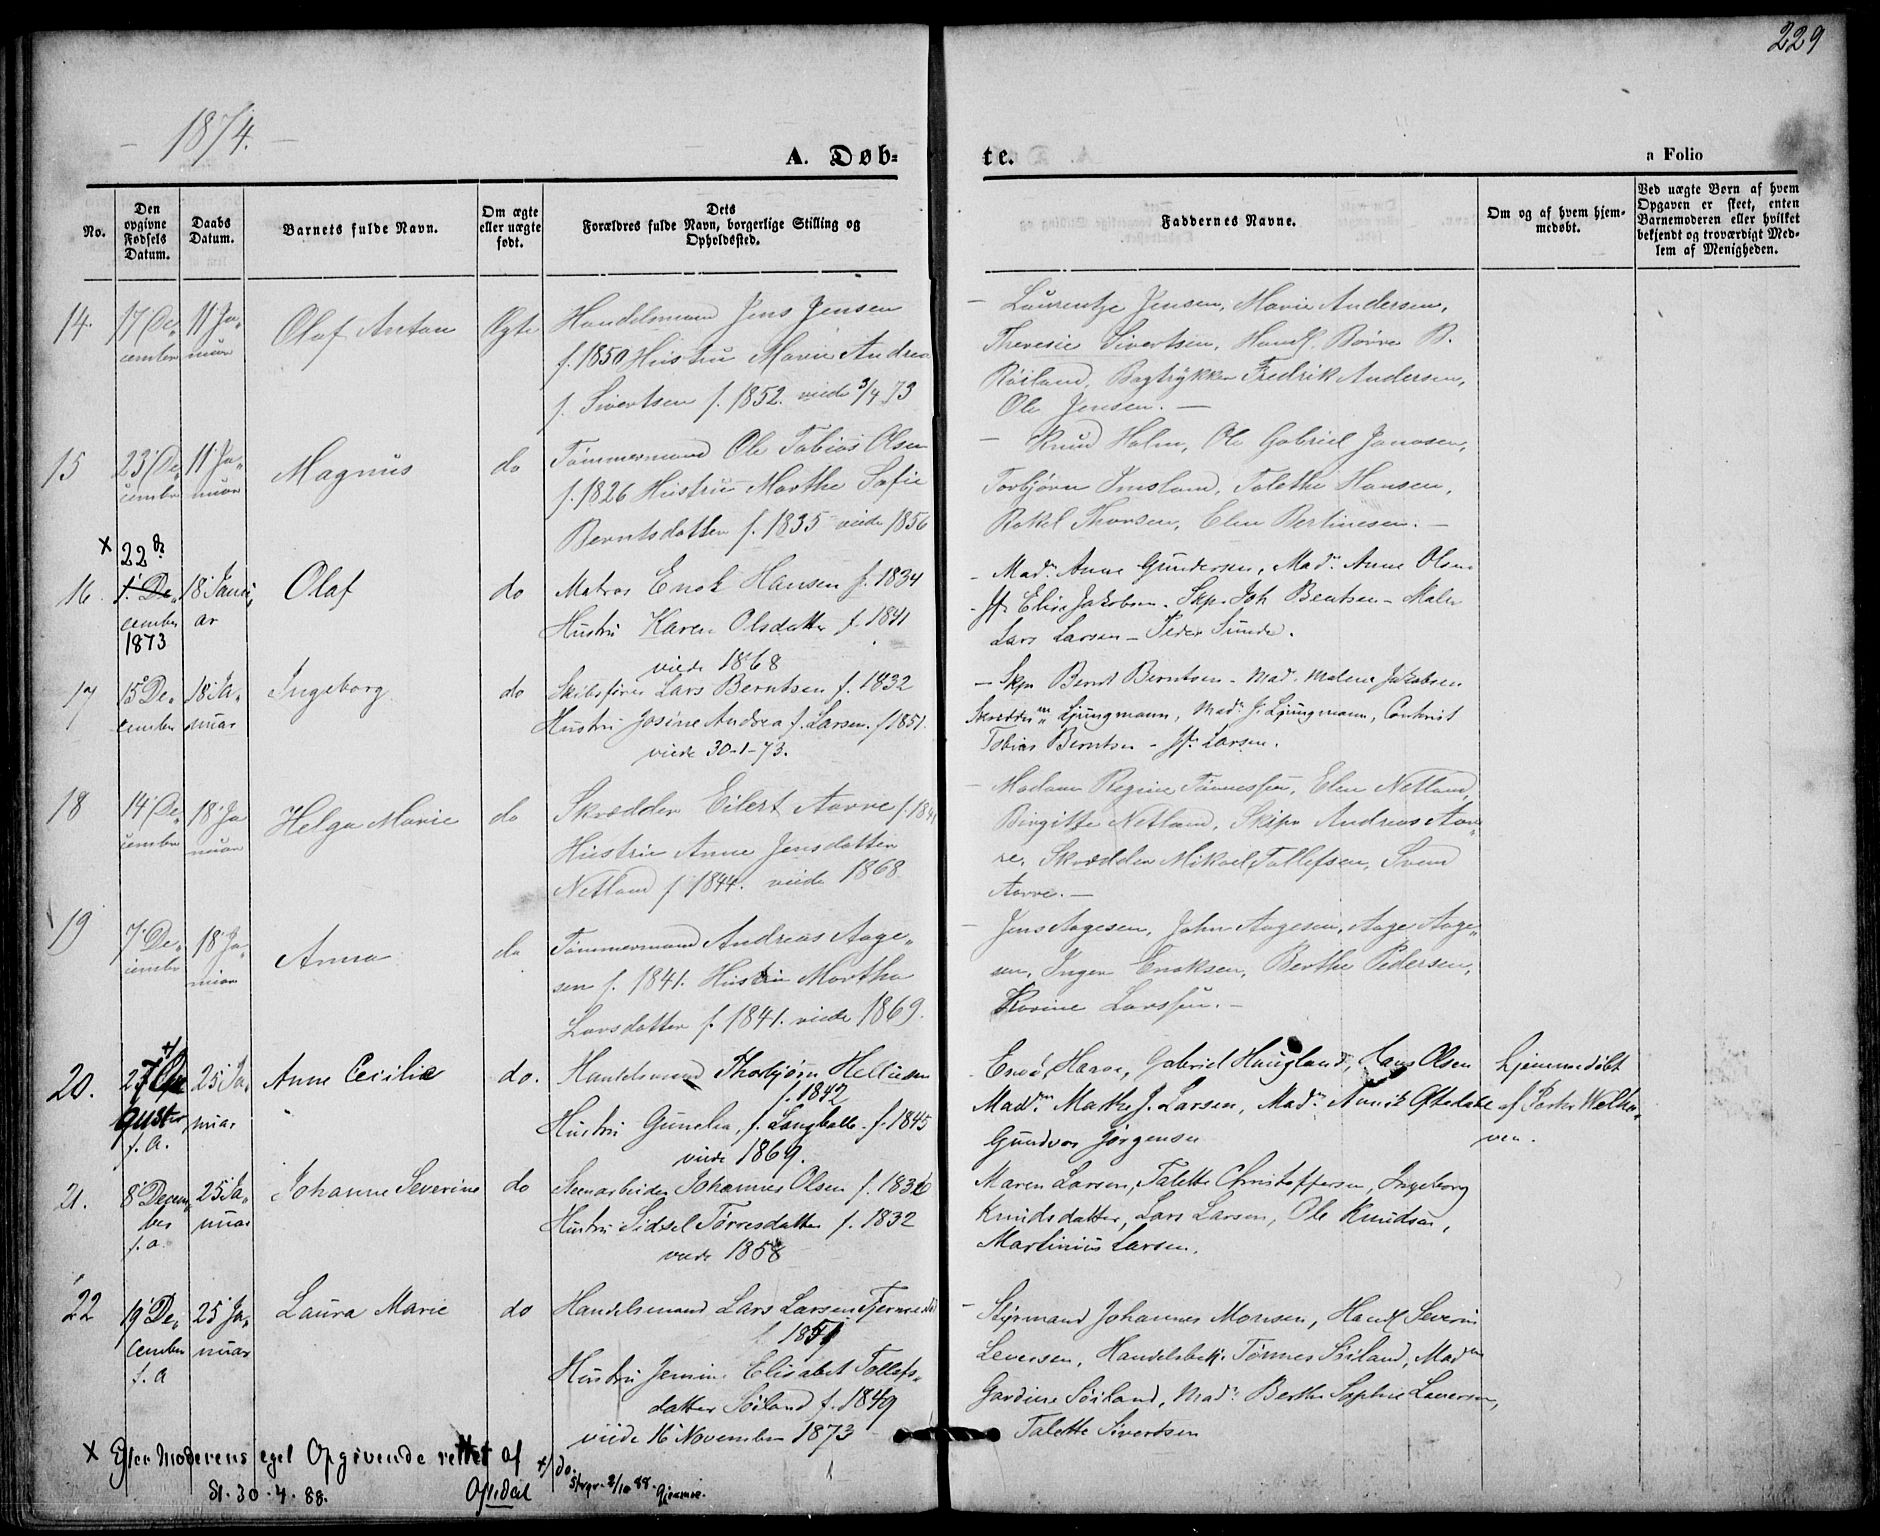 229
1874.
A. Døb-
te.
a Folio
No.
Den opgivne Fødsels Datum.
Daabs Datum.
Barnets fulde Navn.
Om ægte eller uægte født.
Dets Forældres fulde Navn, borgerlige Stilling og Opholdssted.
Faddernes Navne.
Om og af hvem hjemmedøbt.
Ved uægte Børn af hvem Opgaven er skeet, enten Barnemoderen eller hvilket bekjendt og troværdigt Medlem af Menigheden.
14. 17 De- 11 Ja- Olaf Anton Ægte Handelsmand Jens Jensen
cember nuar f. 1850 Hustru Marie Andrea
f. Sivertsen f. 1852. viede 3/4 73
Laurentze Jensen, Marie Andersen,
Theresie Sivertsen, Børre B.
Røiland, Bogtrykker Fredrik Andersen,
Ole Jensen. —
15 23 De- 11 Ja- Magnus do Tømmermand Ole Tobias Olsen
cember nuar f. 1826 Hustru Marthe Sofie
Berntsdatter f. 1835 viede 1856
— Knud Holm, Ole Gabriel Janasen,
Torbjørn Imsland, Talethe Hansen,
Rakel Thorsen, Elen Bertinesen. —
x 22
16. De- 18 Janu- Olaf do Matros Enok Hansen f. 1834
cember ar Hustru Karen Olsdatter f. 1841
1873 viede 1868
- Mad. Anne Gundersen, Mad. Anne Olsen
Elise Jakobsen - Skp. Joh Bentsen - Maler
Lars Larsen - Peder Sunde.
17 15 De- 18 Ja- Ingeborg do Skibsfører Lars Berntsen f. 1832
cember nuar Hustru Josine Andrea f. Larsen f 1851.
viede 30-1-73.
— Skp Bernt Berntsen - Mad. Malene Jakobsen
Ljungmann, Mad. J. Ljungmann,
Tobias Berntsen - Larsen.
18 14 De- 18 Ja Helga Marie do Skrædder Eilert Aarre f. 1841
cember nuar Hustru Anne Jensdatter
Netland f 1844. viede 1868
— Madam Regine Tønnessen, Elen Netland,
Birgitte Netland, Skipr Andreas Aar-
re, Skrædder Mikael Tollefsen, Svend
Aarre. —
19 7 De- 18 Ja- Anna do Tømmermand Andreas Aage-
cember nuar sen f. 1841. Hustru Martha
Larsdatter f. 1841. viede 1869.
— Jens Aagesen, John Aagesen, Aage Aage-
sen, Inger Enoksen, Berthe Pedersen,
Karine Larssen. —
20. 25 Ja- Anne Cecilie do. Handelsmand Thorbjørn Helliesen
gust nuar f. 1842
f. A. Hustru Gunelia, f. Langballe f. 1845
viede 1869.
Gabriel Haugland, Hans Olsen Hjemmedøbt
Mad. Mathe J. Larsen, Mad. Oftedahl af Pastor Welha-
Gundvor Jørgensen ven.
21. 8 Decem- 25 Ja- Johanne Severine do Steenarbeider Johannes Olsen f. 1830
ber nuar Hustru Sidsel Tørresdatter f. 1832
f. a. viede 1858
Maren Larsen, Talette Christoffersen, Ingeborg
Knudsdatter, Lars Larsen, Ole Knudsen,
Martinius Larsen.
22 19 De- 25 Ja- Laura Marie do Handelsmand Lars Larsen
cember nuar f. 1851
f. A Hustru Elisabet Tollefs-
datter Søiland f. 1849
viede 16 November 1873
— Styrmand Johannes Monsen, Severin
Leversen, Tønnes Søiland, Mad
Gardine Søiland, Mad. Berthe Sophie Leversen,
Talette Sivertsen
x Efter Moderens eget Opgivende rettet af
St. 30-4-88. Oftedal
+/ do. 2/10 88.